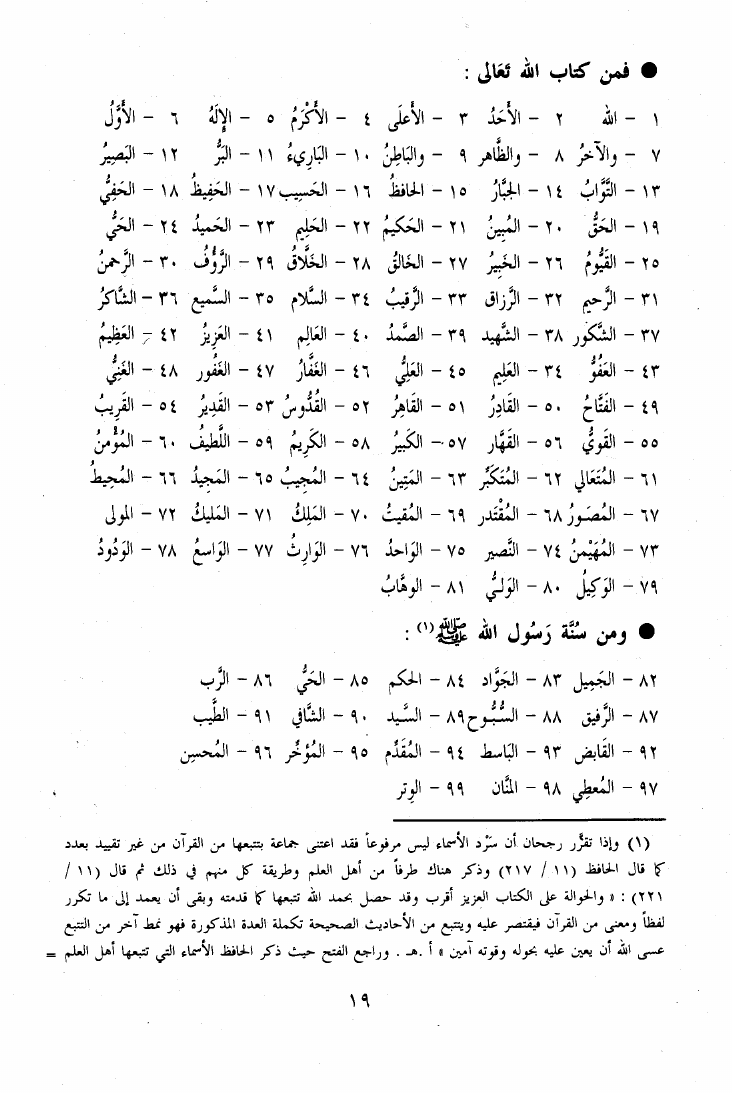 ● فمن كتاب الله تَعَالى :
١ - الله ٢ - الأَحَدُ ٣ - الأَعلَى ٤ - الأَكْرَمُ ٥ - الإِلَهُ ٦ - الأَوَّلُ
٧ - والآخرُ ٨ - والظَّاهر ٩ - والبَاطِنُ ١٠ - البَارِيءُ ١١ - البَرُّ ١٢ - البَصِيرُ
١٣ - التَّوَّابُ ١٤ - الجَبَّارُ ١٥ - الحافظُ ١٦ - الحَسيب ١٧ - الحَفِيظُ ١٨ - الحَفِيُّ
١٩ - الحَقُّ ٢٠ - المُبِينُ ٢١ - الحَكيمُ ٢٢ - الحَلِيم ٢٣ - الحَميدُ ٢٤ - الحَيُّ
٢٥ - القَيُّومُ ٢٦ - الخَبِيرُ ٢٧ - الخَالقُ ٢٨ - الخَلَّاقُ ٢٩ - الرَّؤُف ٣٠ - الرَّحمنُ
٣١ - الرَّحيم ٣٢ - الرَّزاق ٣٣ - الرَّقيبُ ٣٤ - السَّلام ٣٥ - السَّميع ٣٦ - الشَّاكرُ
٣٧ - الشَّكور ٣٨ - الشَّهيد ٣٩ - الصَّمدُ ٤٠ - العَالِم ٤١ - العَزيزُ ٤٢ - العَظِيمُ
٤٣ - العَفُوُّ ٣٤ - العَلِيم ٤٥ - العَلِيُّ ٤٦ - الغَفَّارُ ٤٧ - الغَفُور ٤٨ - الغَنِيُّ
٤٩ - الفَتَّاحُ ٥٠ - القَادِرُ ٥١ - القَاهِرُ ٥٢ - القُدُّوسُ ٥٣ - القَدِيرُ ٥٤ - القَرِيبُ
٥٥ - القَوِيُّ ٥٦ - القَهَّار ٥٧ - الكَبيرُ ٥٨ - الكَرِيمُ ٥٩ - اللَّطيفُ ٦٠ - المُؤْمنُ
٦١ - المُتَعَالي ٦٢ - المُتَكَبِّر ٦٣ - المَتِينُ ٦٤ - المُجِيبُ ٦٥ - المَجِيدُ ٦٦ - المُحيطُ
٦٧ - المُصَورُ ٦٨ - المُقْتَدر ٦٩ - المُقيتُ ٧٠ - المَلِكُ ٧١ - المَليكُ ٧٢ - المولى
٧٣ - المُهَيْمنُ ٧٤ - النَّصير ٧٥ - الواحدُ ٧٦ - الوَارِثُ ٧٧ - الوَاسعُ ٧٨ - الوَدُودُ
٧٩ - الوَكِيلُ ٨٠ - الوَلِيُّ ٨١ - الوهَّابُ
● ومن سُنَّة رَسُول الله ﷺ(١) :
٨٢ - الجَمِيل ٨٣ - الجَوَّاد ٨٤ - الحكم ٨٥ - الحَيُّ ٨٦ - الرَّب
٨٧ - الرَّفيق ٨٨ - السُّبُّوح ٨٩ - السَّيد ٩٠ - الشَّافي ٩١ - الطَّيب
٩٢ - القَابض ٩٣ - البَاسط ٩٤ - المُقَدَّم ٩٥ - المُؤخِّر ٩٦ - المُحسِن
٩٧ - المُعطِي ٩٨ - المَنَّان ٩٩ - الوِتر
(١) وإذا تقرَّر رجحان أن سَرْد الأسماء ليس مرفوعاً فقد اعتنى جماعة بتتبعها من القرآن من غير تقييد بعدد
كما قال الحافظ (١١ / ٢١٧) وذكر هناك طرفاً من أهل العلم وطريقة كل منهم في ذلك ثم قال (١١ /
٢٢١) : « والحوالة على الكتاب العزيز أقرب وقد حصل بحمد الله تتبعها كما قدمته وبقى أن يعمد إلى ما تكرر
لفظاً ومعنى من القرآن فيقتصر عليه ويتتبع من الأحاديث الصحيحة تكملة العدة المذكورة فهو نمط آخر من التتبع
عسى الله أن يعين عليه بحوله وقوته آمين » أ . هـ . وراجع الفتح حيث ذكر الحافظ الأسماء التي تتبعها أهل العلم =
١٩